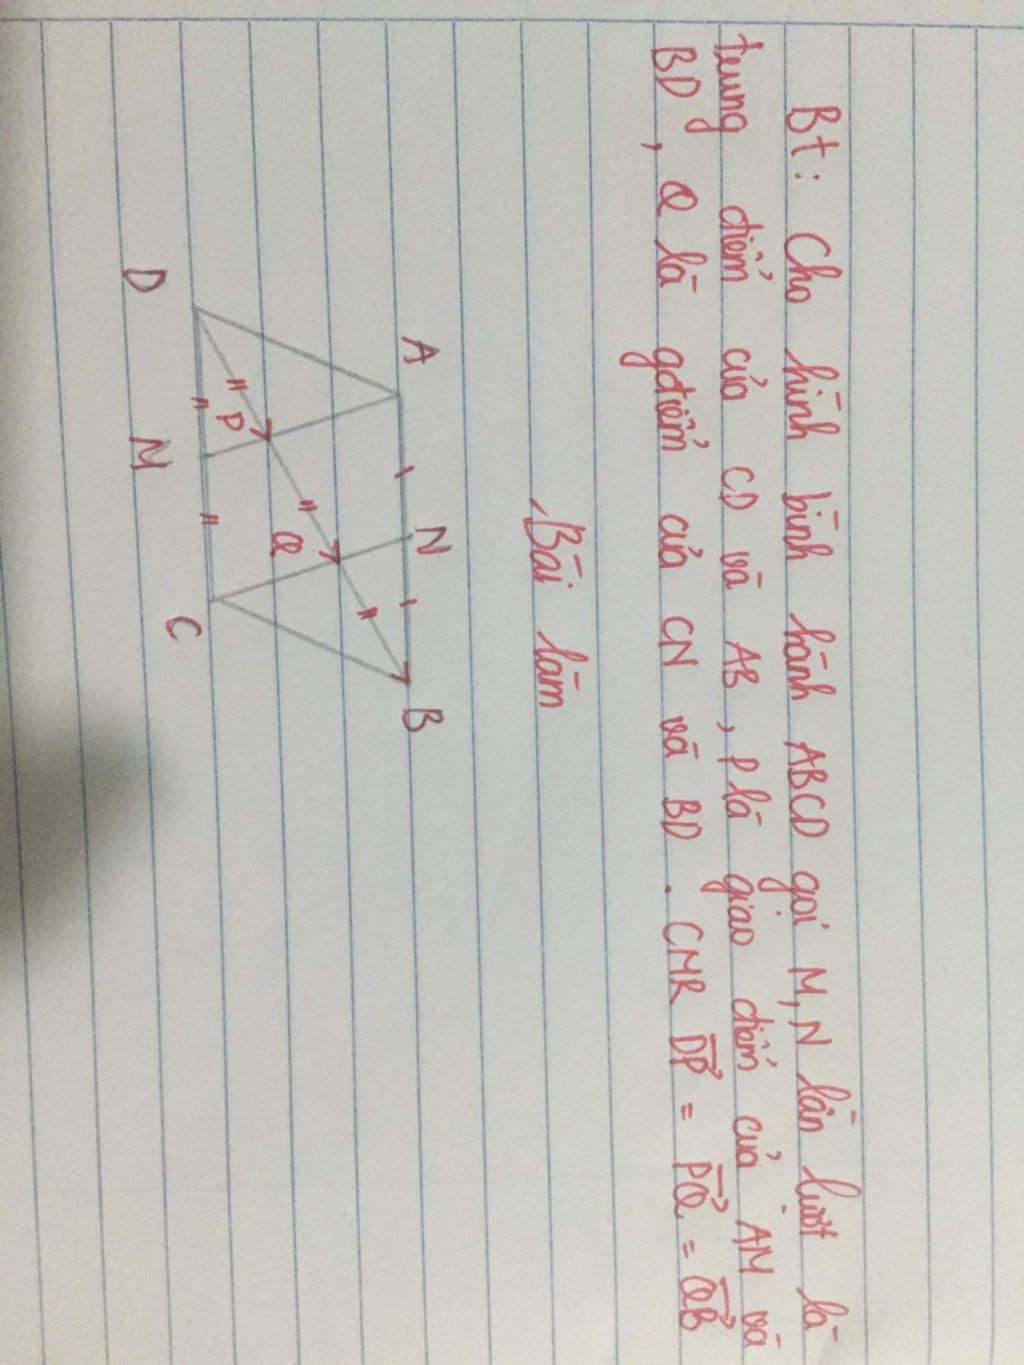 Bt: Cho hình bình hành ABCD gọi M, N lần lượt là
trung điểm của CD và AB, P là giao điểm của AM và
BD, Q là gđiểm của CN và BD. CMR DP→ = PQ→ = QB→
Bài làm
A N B
P Q
D M C